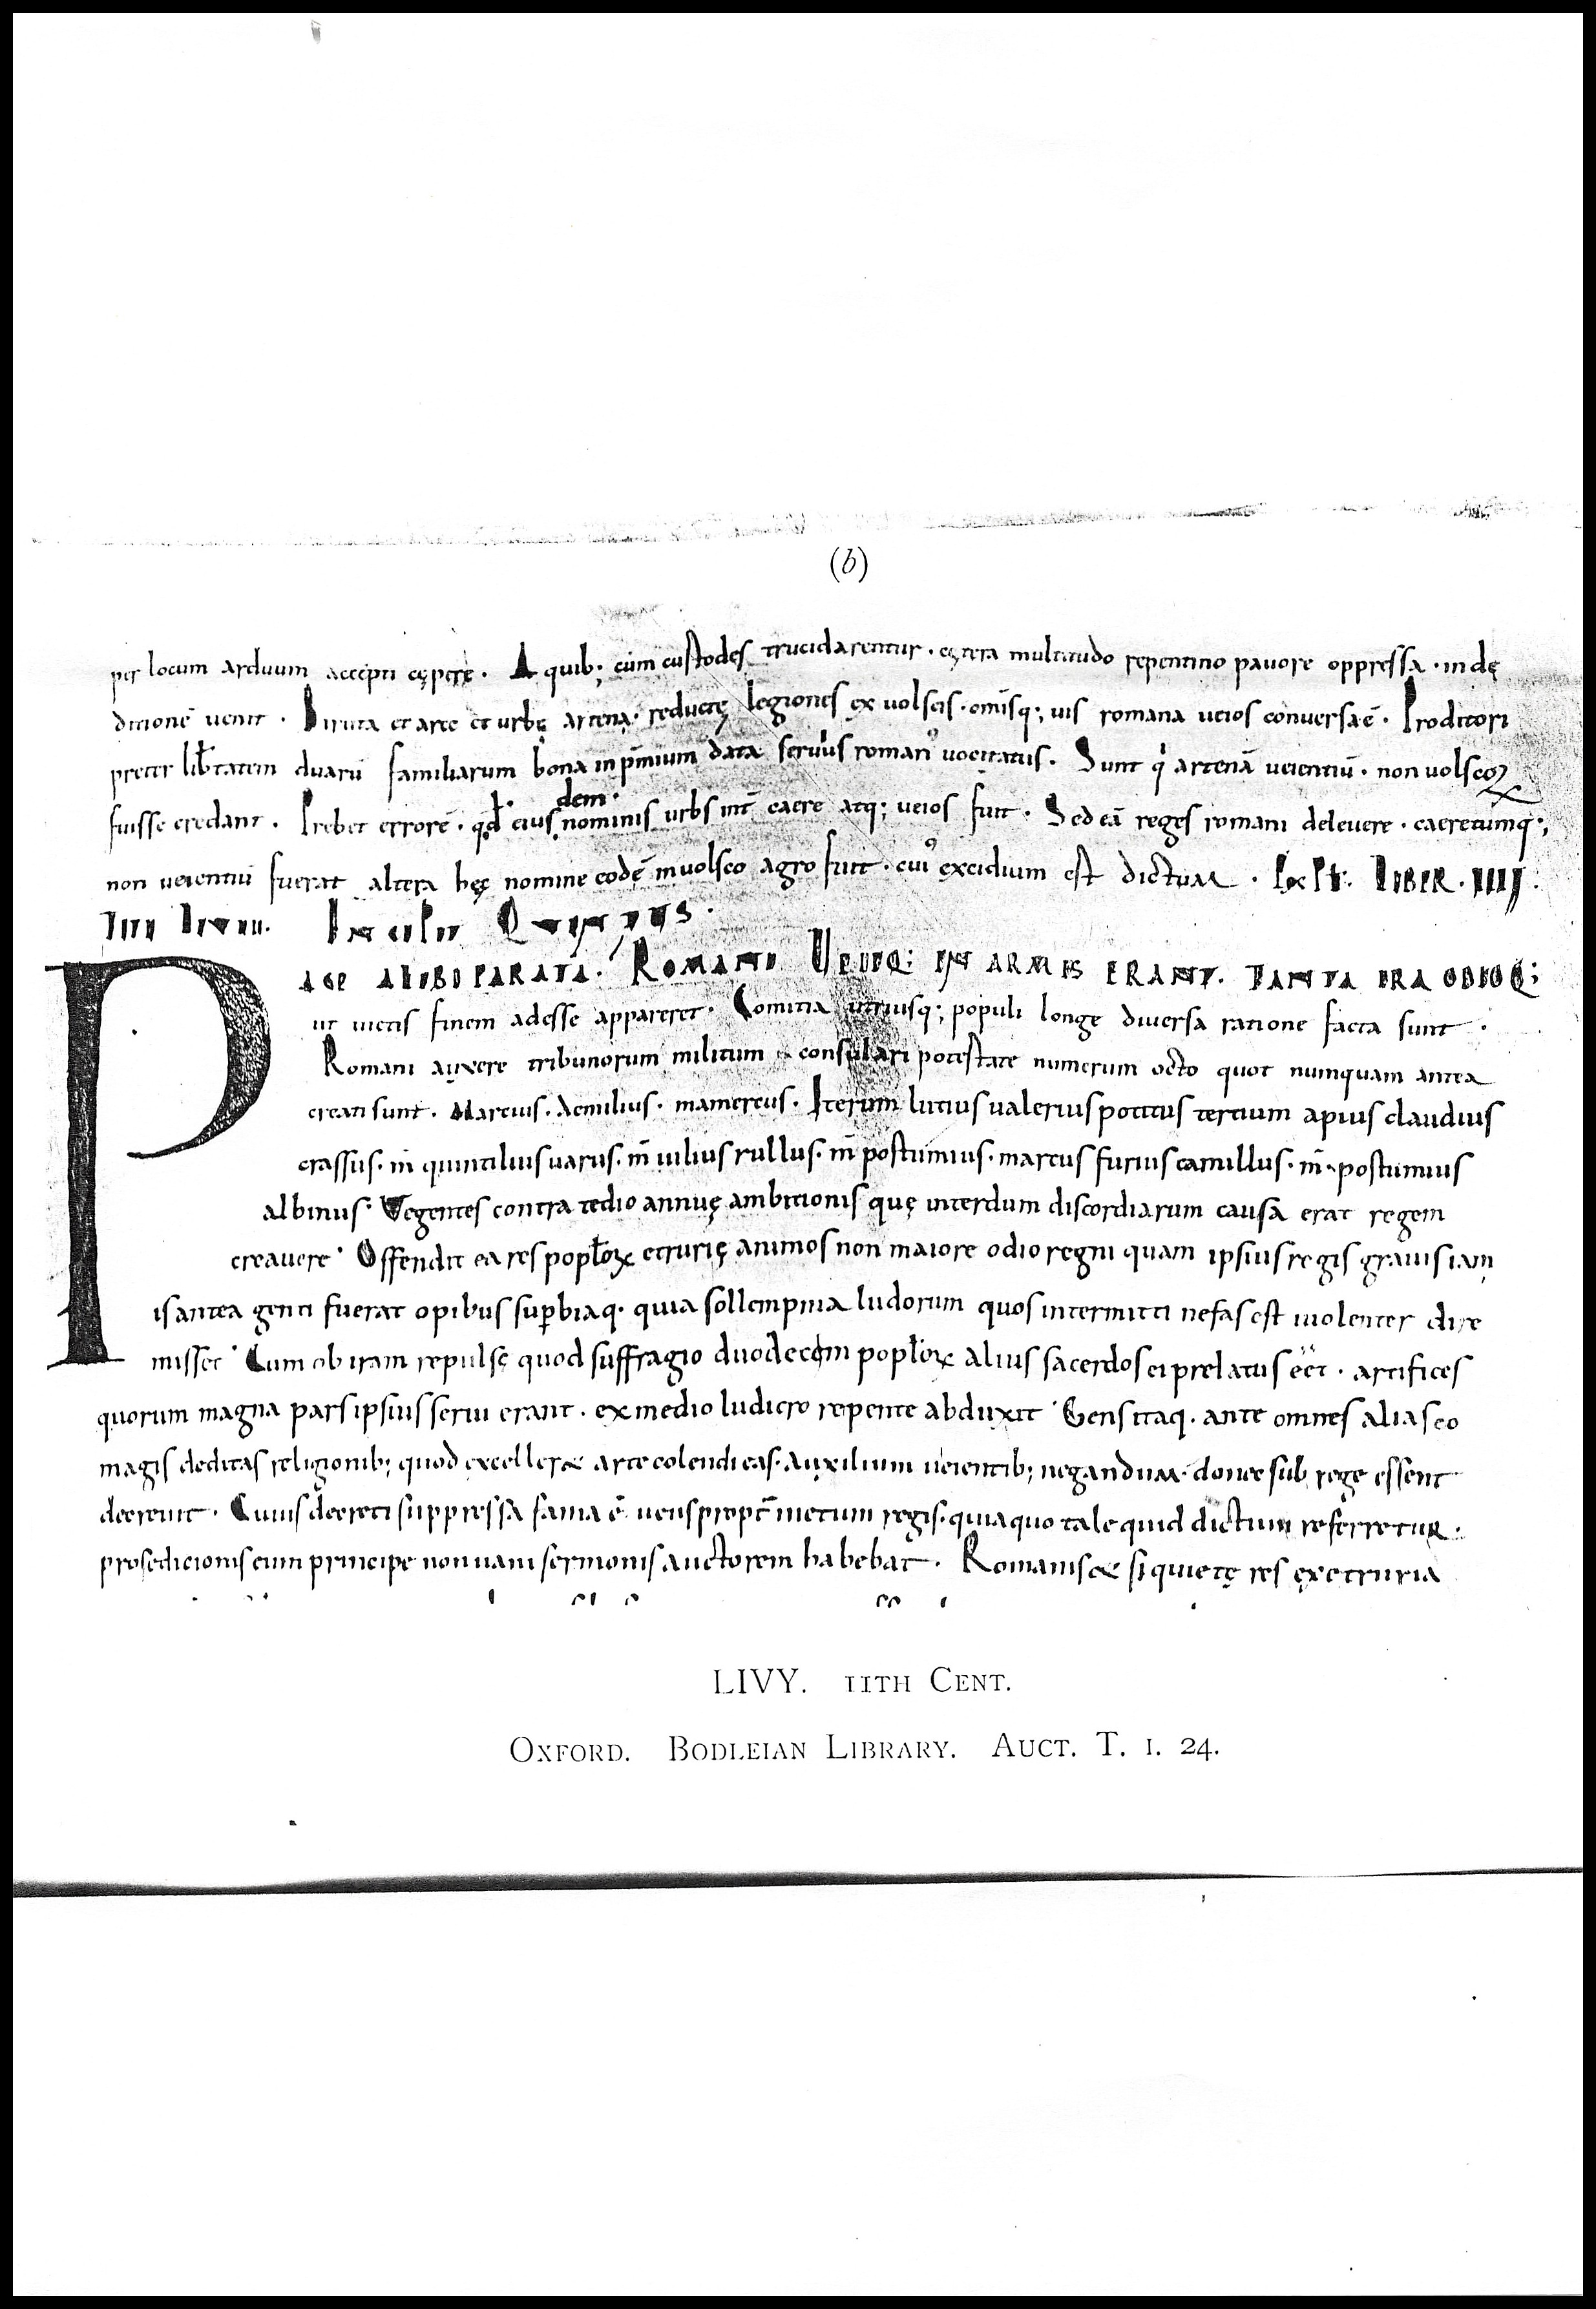 (b)
per locum arduum accepti cępere . A quib; cum custodes trucidarentur . cętera multitudo repentino pavore oppressa . in dę
ditionē venit . Diruta et arce et urbę artena . reductę legiones ex volscis . omīsq; uis romana ueios conversa ē . Proditori
preter libtatem duarū familiarum bona in pmium data seruus romanꝰ uocitatus . Sunt qi artenā ueientiū . non volscoꝝ
fuisse credant . Prebet errorē . qđ eius dem nominis urbs int caere atq; ueios fuit . Sed eā reges romani delevere . caeretumq;,
non ueientiū fuerat altera hęc nomine eodē in uolsco agro fuit . cuiꝰ excidium est dictum . LIBER . IIII .
QUINTUS .
PACE ALIBI PARATA . ROMANI UEIIQ; IN ARMIS ERANT . TANTA IRA ODIOQ;
ut uictis finem adesse appareret . Comitia utriusq; populi longe diversa ratione facta sunt .
Romani auxere tribunorum militum consulari potestate numerum octo quot numquam antea
creati sunt . Martius . Aemilius . mamercus . Iterum lutius valerius potitus tertium apius claudius
crassus . m̄ quintilius uarus . m̄ iulius rullus . m̄ postumius . marcus furius camillus . m̄ . postumius
albinus . Uegentes contra tedio annuę ambitionis quę interdum discordiarum causa erat regem
creavere . Offendit ea res popłoꝝ etrurię animos non maiore odio regni quam ipsius regis grauis iam
is antea genti fuerat opibus supbiaq . quia sollempnia ludorum quos intermitti nefas est uiolenter dire
misset . Cum ob iram repulsę quod suffragio duodecim popłoꝝ alius sacerdos ei prelatus eēt . artifices
quorum magna pars ipsius serui erant . ex medio ludicro repente abduxit . Gens itaq . ante omnes alias eo
magis deditas religionib; quod exceller& arte colendi eas . auxilium ueientib; negandum . donec sub rege essent
decreuit . Cuius decreti suppressa fama ē ueus propt̄ metum regis . quia quo tale quid dictum referretur .
pro sedicionis eum principe non uani sermonis auctorem habebat . Romanis & si quietę res ex etruria
LIVY. 11TH CENT.
OXFORD. BODLEIAN LIBRARY. AUCT. T. I. 24.